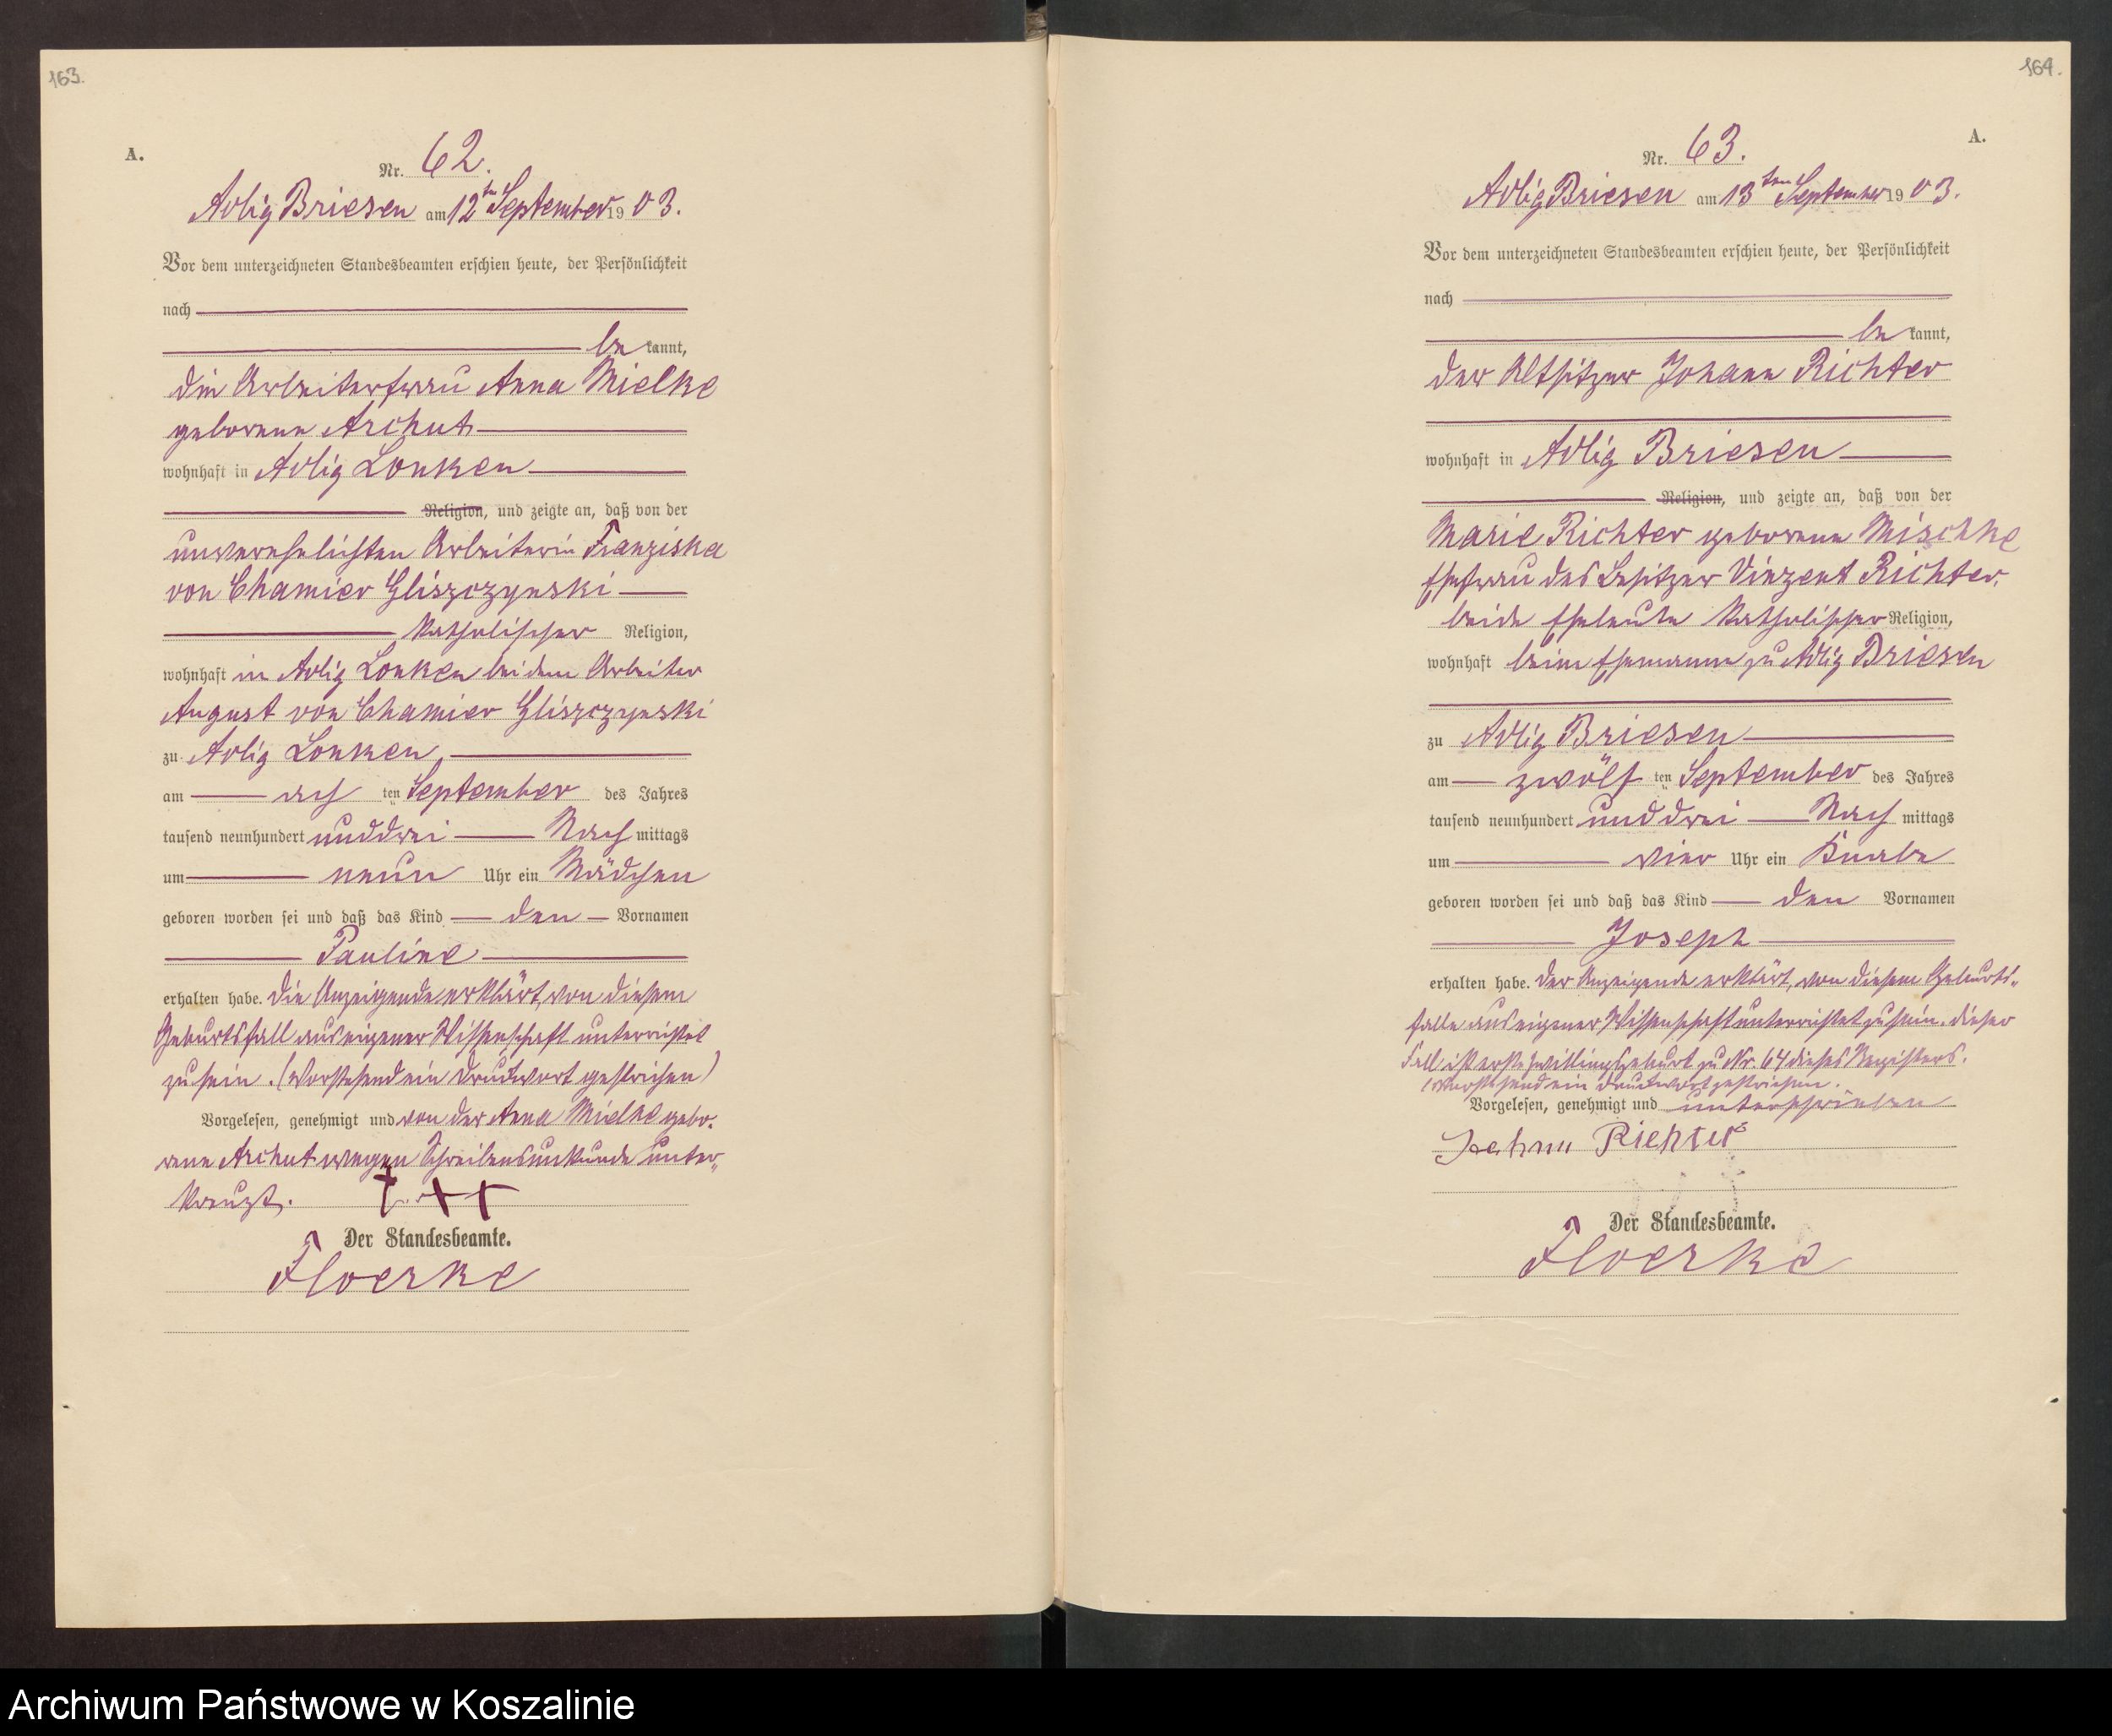 163.
A.
Nr. 62.
Adlig Briesen am 12ten September 1903.
Vor dem unterzeichneten Standesbeamten erschien heute, der Persönlichkeit
nach
be kannt,
die Arbeiterfrau Anna Mielke
geborene Archut
wohnhaft in Adlig Lonken
Religion, und zeigte an, daß von der
unverehelichten Arbeiterin Franziska
von Chamier Gliszczynski
katholischer Religion,
wohnhaft in Adlig Lonken bei dem Arbeiter
August von Chamier Gliszczynski
zu Adlig Lonken,
am ach ten September des Jahres
tausend neunhundert und drei Nach mittags
um neun Uhr ein Mädchen
geboren worden sei und daß das Kind den Vornamen
Pauline
erhalten habe. Die Anzeigende erklärt, von diesem
Geburtsfall aus eigener Wissenschaft unterrichtet
zu sein. (Vorstehend ein Druckwort gestrichen)
Vorgelesen, genehmigt und von der Anna Mielke gebo-
rene Archut wegen Schreibensunkunde unter-
kreuzt. +++
Der Standesbeamte.
Floerke
164.
A.
Nr. 63.
Adlig Briesen am 13ten September 1903.
Vor dem unterzeichneten Standesbeamten erschien heute, der Persönlichkeit
nach
be kannt,
der Altsitzer Johann Richter
wohnhaft in Adlig Briesen
Religion, und zeigte an, daß von der
Marie Richter geborene Mischke
Ehefrau des Besitzer Vinzent Richter,
beide Eheleute katholischer Religion,
wohnhaft beim Ehemanne zu Adlig Briesen
zu Adlig Briesen
am zwölf ten September des Jahres
tausend neunhundert und drei Nach mittags
um vier Uhr ein Knabe
geboren worden sei und daß das Kind den Vornamen
Joseph
erhalten habe. Der Anzeigende erklärt, von diesem Geburts-
falle aus eigener Wissenschaft unterrichtet zu sein. Dieser
Fall ist erste Zwillingsgeburt zu Nr. 64 dieses Registers.
(Vorstehend ein Druckwort gestrichen.
Vorgelesen, genehmigt und unterschrieben
Johann Richter
Der Standesbeamte.
Floerke
Archiwum Państwowe w Koszalinie